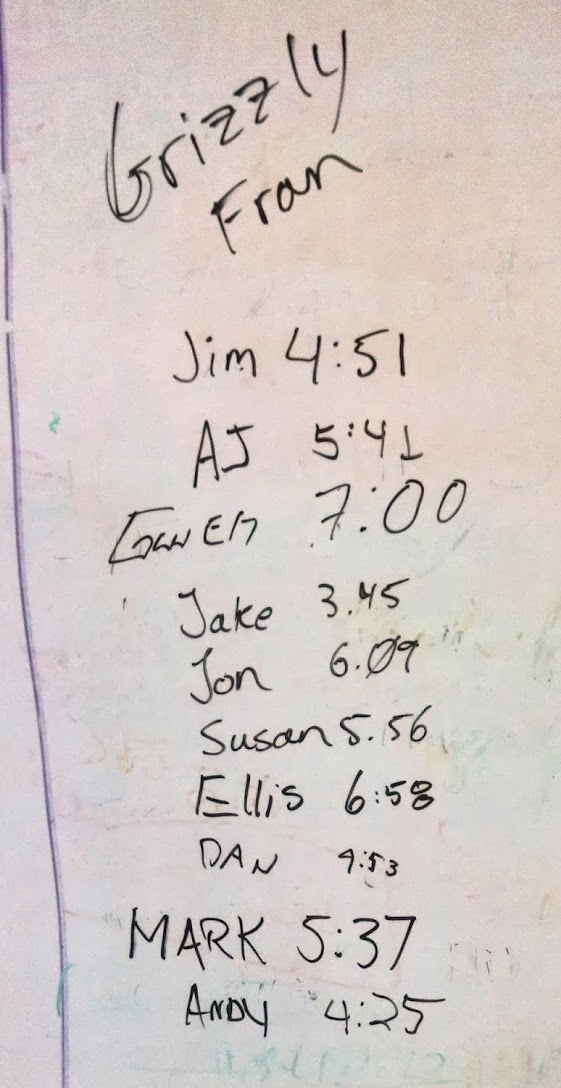 Grizzly
Fran
Jim 4:51
AJ 5:41
7:00
Jake 3.45
Jon 6.09
Susan 5.56
Ellis 6:58
DAN 4:53
MARK 5:37
ANDY 4:25